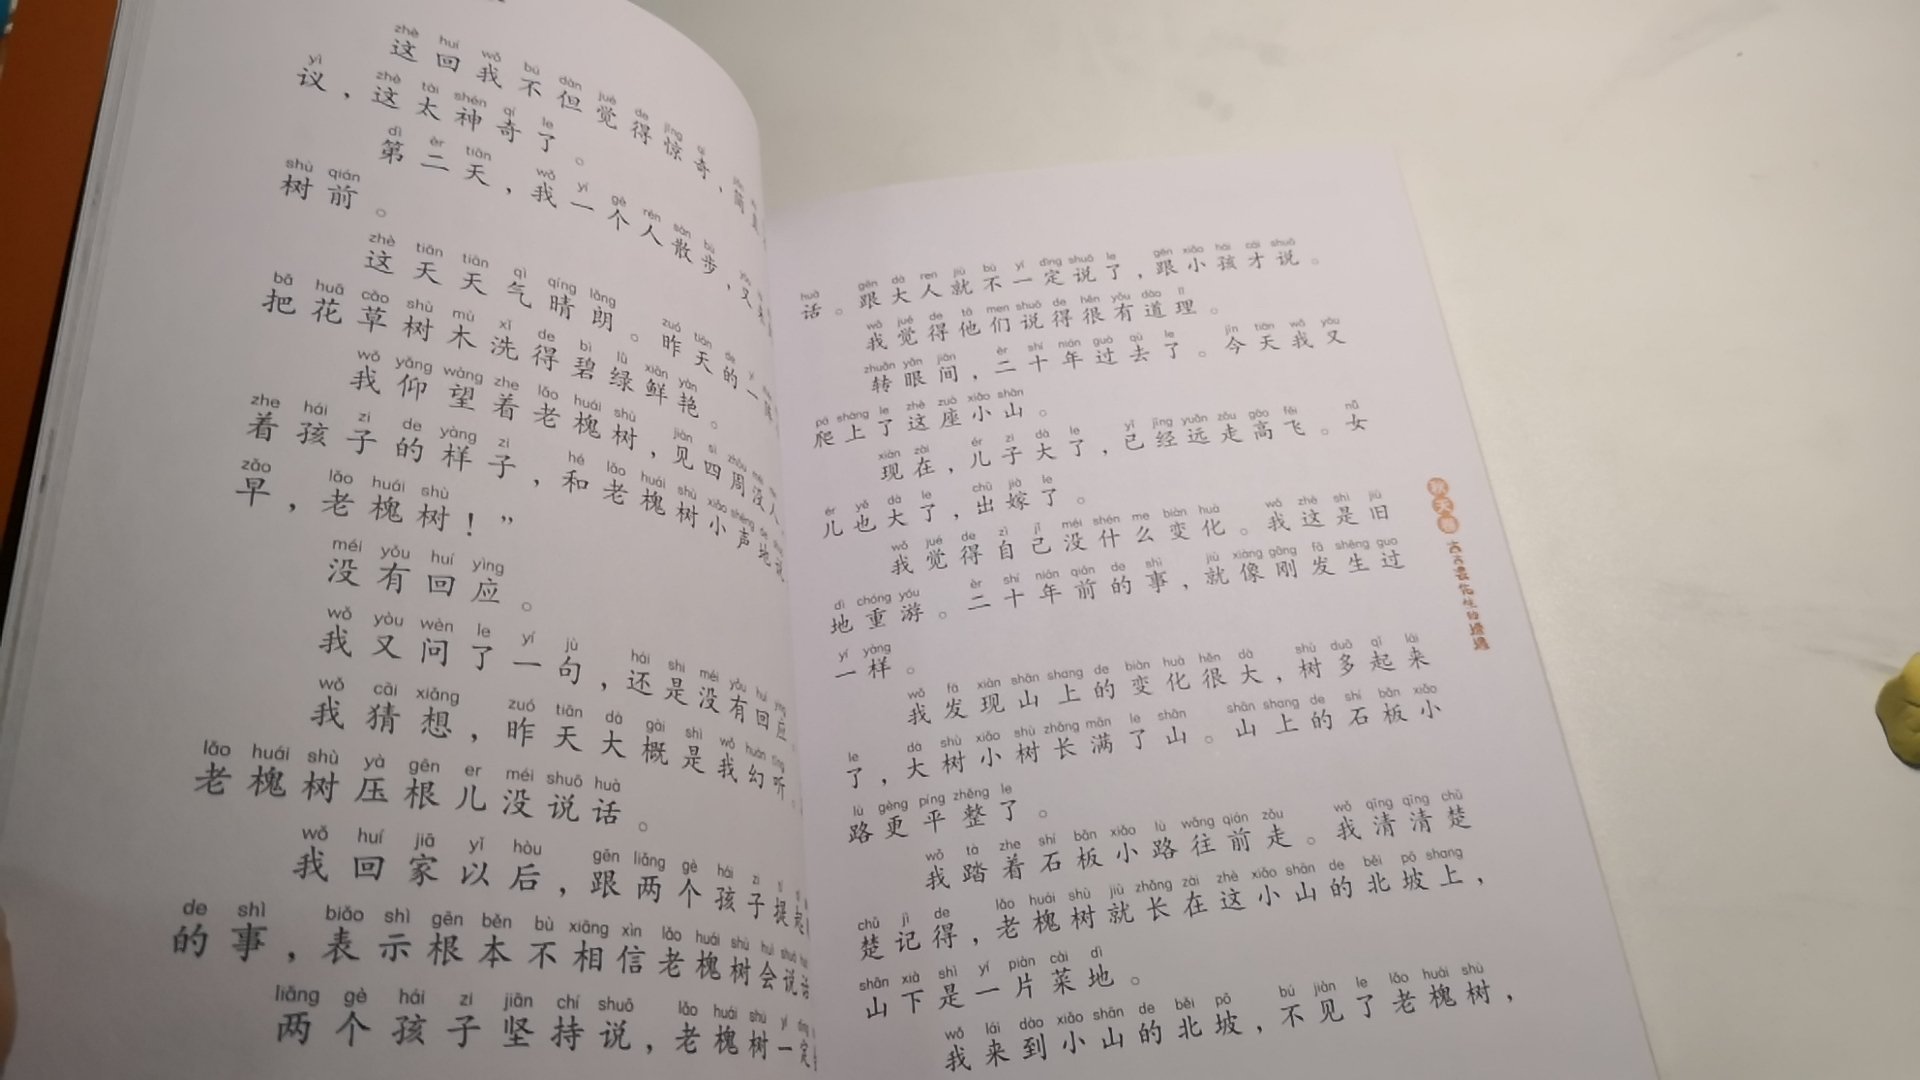 这回我不但觉得惊奇、简直
议，这太神奇了。
第二天，我一个人散步，又来
树前。
这天天气晴朗。昨天的一
把花草树木洗得碧绿鲜艳。
我仰望着老槐树，见四周没人，
着孩子的样子，和老槐树小声地说
早，老槐树！”
没有回应。
我又问了一句，还是没有回应。
我猜想，昨天大概是我幻听。
老槐树压根儿没说话。
我回家以后，跟两个孩子提起
的事，表示根本不相信老槐树会说话
两个孩子坚持说，老槐树一定
话。跟大人就不一定说了，跟小孩才说。
我觉得他们说得很有道理。
转眼间，二十年过去了。今天我又
爬上了这座小山。
现在，儿子大了，已经远走高飞。女
儿也大了，出嫁了。
我觉得自己没什么变化。我这是旧
地重游。二十年前的事，就像刚发生过
一样。
我发现山上的变化很大，树多起来
了，大树小树长满了山。山上的石板小
路更平整了。
我踏着石板小路往前走。我清清楚
楚记得，老槐树就长在这小山的北坡上，
山下是一片菜地。
我来到小山的北坡，不见了老槐树，
秋天